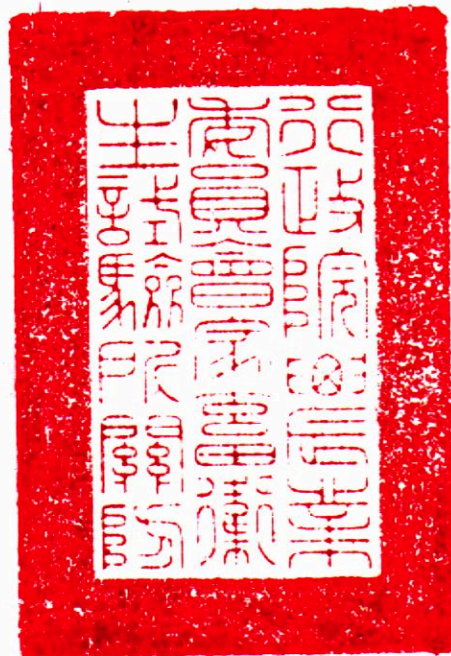 行政院農業
委員會家畜衛
生試驗所關防